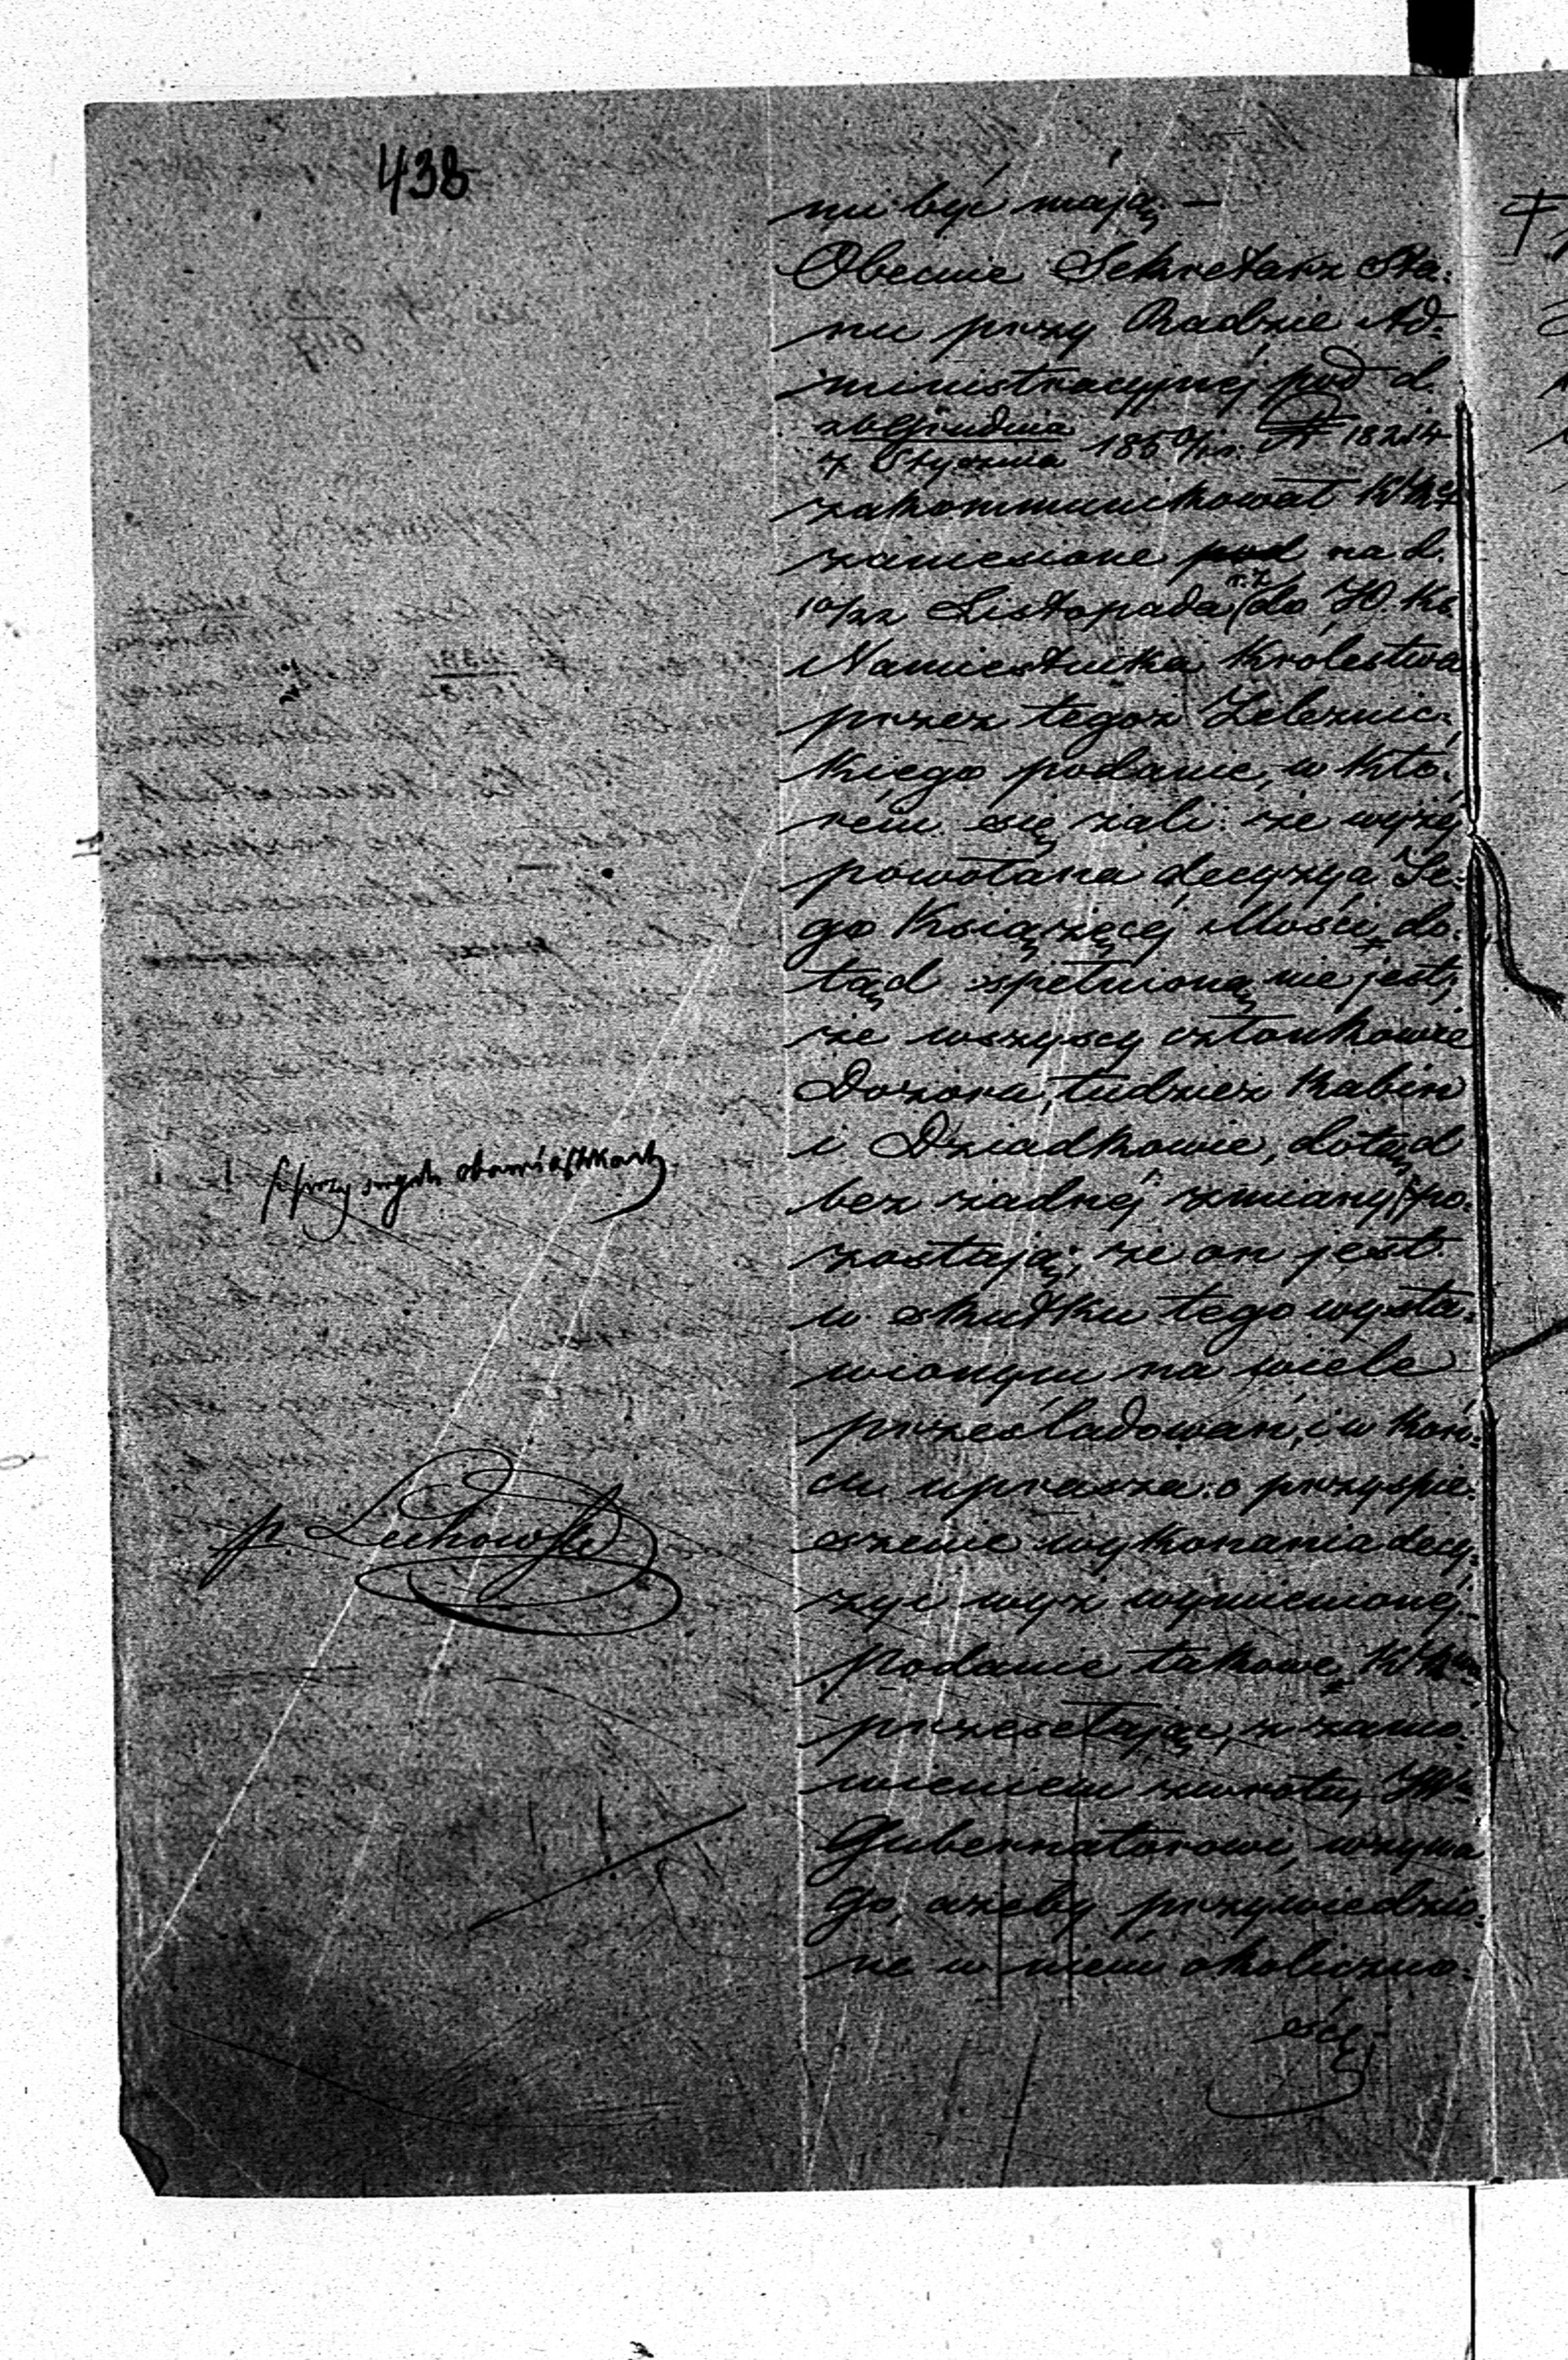 438
ni być mają. —
Obecnie Sekretarz Sta-
nu przy Radzie Ad-
ministracyjnéj pod d.
26 Grudnia
7 Stycznia 185 r. N 18214
zakommunikował
zaniesione pod na d.
10/22 Listopada r. z. do JO. Ks
Namiestnika Królestwa
przez tegoż Zeleznic-
kiego podanie, w któ-
rém się żali: że wyżéj
powołana decyzya Je-
go Książęcéj Mości, do-
tąd spełnioną nie jest,
że wszyscy członkowie
Dozoru, tudzież Rabin
i Dziadkowie, dotąd
bez żadnéj zmiany po-
f przy swych obowiązkach
zostają; że on jest
w skutku tego wysta-
wionym na wiele
prześladowań, i w koń-
cu uprasza: o przyspie-
szenie wykonania decy-
zyi wyż wymienionéj.
p. Luchowski
podanie takowe,
przesełając, z zamó-
wieniem zwrotu, JW
Gubernatorowi, wzywa
go, ażeby przywiedzio-
ne w niém okoliczno-
ści